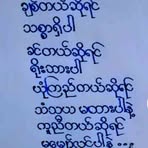 ချစ်တယ်ဆိုရင်
သစ္စာရှိပါ
ခင်တယ်ဆိုရင်
ရိုးသားပါ
ယုံကြည်တယ်ဆိုရင်
သံသယ မထားပါနဲ့
ကူညီတယ်ဆိုရင်
မမျှော်လင့်ပါနဲ့...